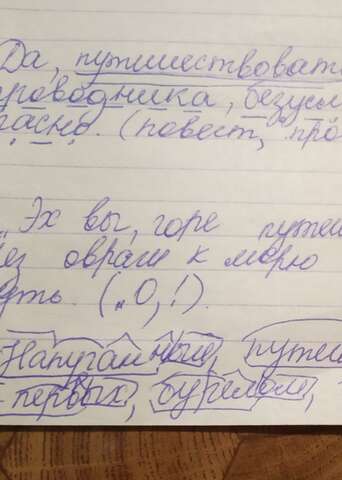 Да, путшествоват
роводника, безусл
асно. (повест, про
„Эх вы, горе путеш
ез овраги к морю
дть. („О, !).
Напуганные, путеш
первых, бурелом,